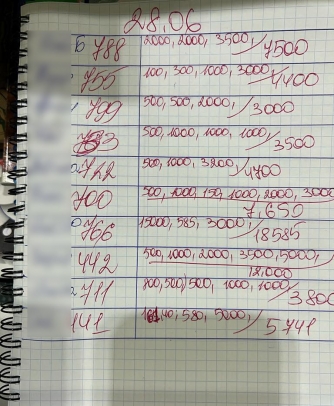 28.06
788 2000, 2000, 3500, / 7500
755 100, 300, 1000, 3000 / 4400
799 500, 500, 2000, / 3000
793 500, 1000, 1000, 1000, / 3500
722 500, 1000, 3200, / 4700
700 500, 1000, 150, 1000, 2000, 3000
7,650
766 15000, 585, 3000, / 18585
442 500, 1000, 2000, 3500, 5000, /
12.000
711 800, 500, 500, 1000, 1000, / 3800
141 40, 580, 5000, / 5741